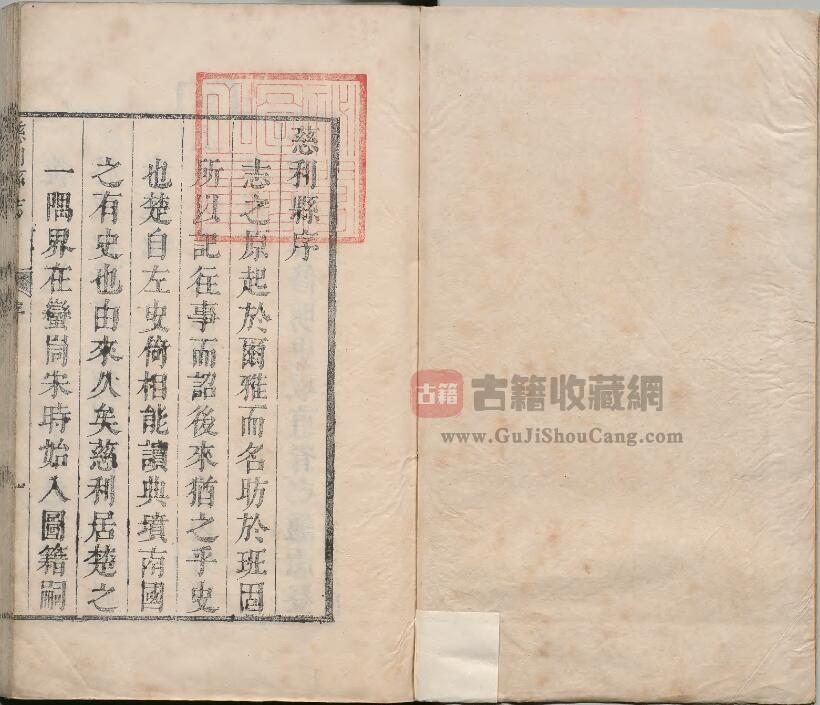 慈利縣序
志之原起於爾雅而名昉於班固
所以記往事而詔後來猶之乎史
也楚自左史倚相能讀典墳南國
之有史也由來久矣慈利居楚之
一隅界在蠻峒宋時始入圖籍嗣
慈利縣志
序
古籍
古籍收藏網
www.GuJiShouCang.com